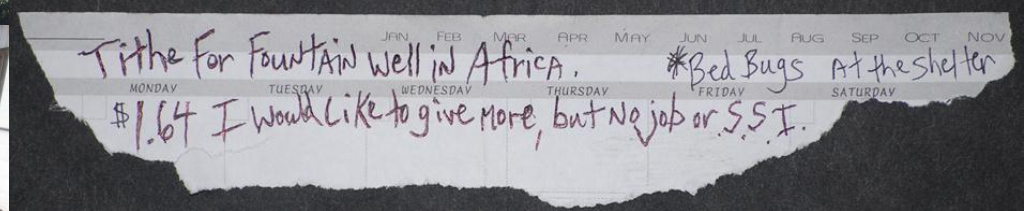 JAN FEB MAR APR MAY JUN JUL AUG SEP OCT NOV
Tithe For Fountain well in Africa. *Bed Bugs At the shelter
MONDAY TUESDAY WEDNESDAY THURSDAY FRIDAY SATURDAY
$1.64 I Would Like to give More, but No job or S.S.I.